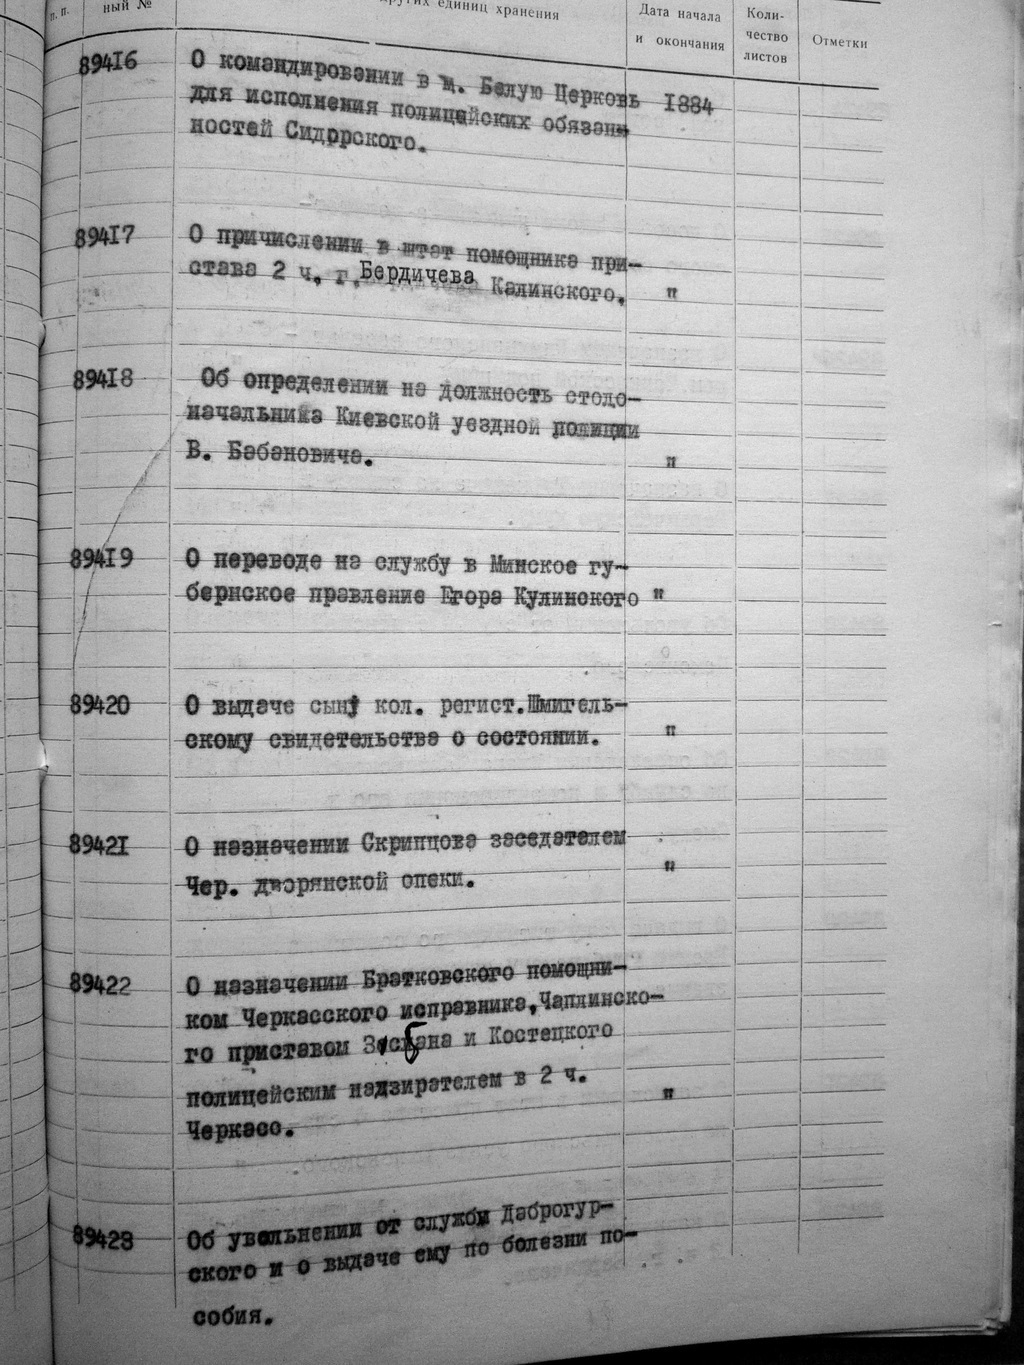 п. п.
ный №
других единиц хранения
Дата начала
и окончания
Коли-
чество
листов
Отметки
89416 О командировании в м. Белую Церковь 1884
для исполнения полицейских обязан-
ностей Сидорского.
89417 О причислении в штат помощника при-
става 2 ч. г. Бердичева Калинского. "
89418 Об определении на должность столо-
начальника Киевской уездной полиции
В. Бабановича. "
89419 О переводе на службу в Минское гу-
бернское правление Егора Кулинского "
89420 О выдаче сыну кол. регист. Шмигель-
скому свидетельства о состоянии. "
89421 О назначении Скрипцова заседателем
Чер. дворянской опеки. "
89422 О назначении Братковского помощни-
ком Черкасского исправника, Чаплинско-
го приставом и Костецкого
полицейским надзирателем в 2 ч. "
Черкасс.
89423 Об увольнении от службы Даброгур-
ского и о выдаче ему по болезни по-
собия.